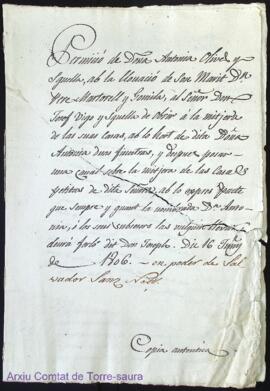 Permiso de Dña Antonia Olives y
Squella, ab la llicencia de son Marit Dn
Pere Martorell y Gomila, al Señor Don
Josef Vigo y Squella de obrir a la mitjorde
de las suas Casas, ab lo Hort de dita Dña
Antonia dues finestras, y despues posar
una canal sobre la mitjora de las Casas
de dita Señora, ab lo expres pacte
que sempre y quant la nombrada Dña Anto-
nia, o los seus
deurá ferlo dit Don Joseph. Die 16
de 1806. — en poder de Sal-
vador Sanz Notr.
Copia autentica
Arxiu Comtat de Torre-saura